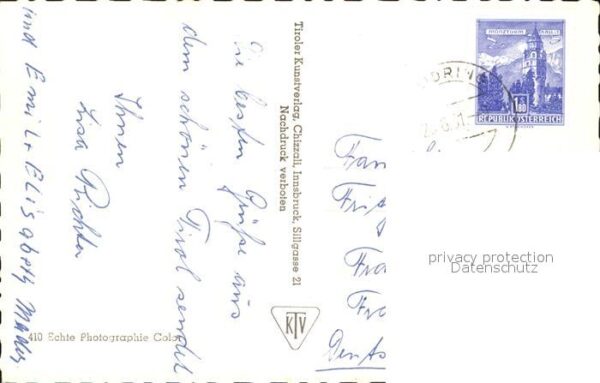 Die besten Grüße aus
dem schönen Tirol sendet
Ihnen
Lisa Richter
und Emil + Elisabeth
Tiroler Kunstverlag, Chizzali, Innsbruck, Sillgasse 21
Nachdruck verboten
KTV
410 Echte Photographie Color
MÜNZTURM HALL I. T.
1.80
REPUBLIK ÖSTERREICH
Fran
Fra
Fra
privacy protection
Datenschutz